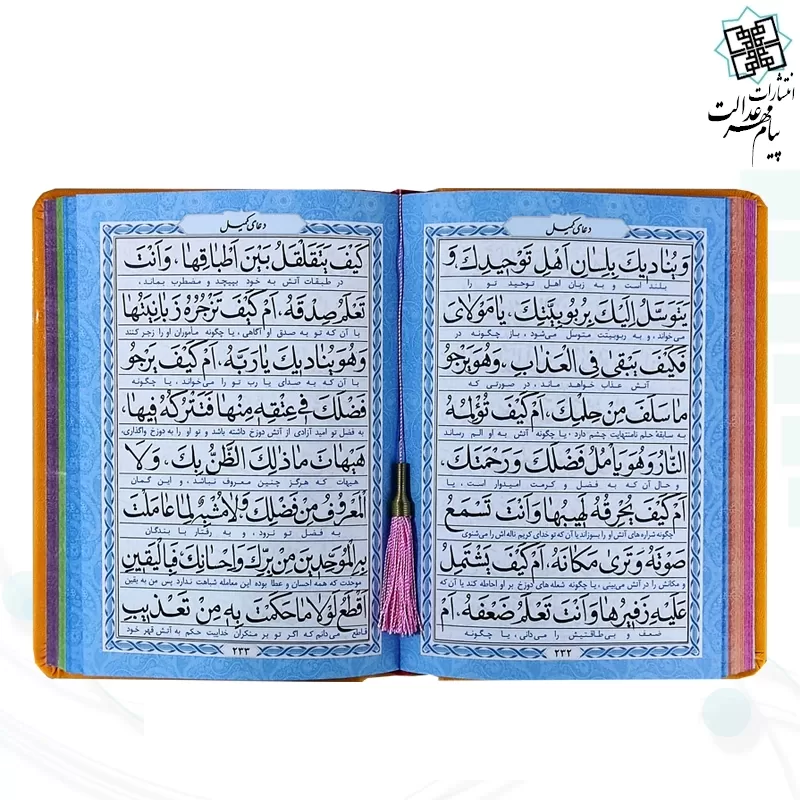 انتشارات
پیام مهر عدالت
دعای کمیل
وَ یُنادیكَ بِلِسانِ اَهْلِ تَوْحیدِكَ وَ
بلند است و به زبان اهل توحید تو را
یَتَوَسَّلُ اِلَیْكَ بِرُبُوبِیَّتِكَ، یا مَوْلایَ
می‌خواند، و به ربوبیتت متوسل می‌شود، باز چگونه در
فَكَیْفَ یَبْقى فِی الْعَذابِ، وَ هُوَ یَرْجُو
آتش عذاب خواهد ماند، در صورتی که
ما سَلَفَ مِنْ حِلْمِكَ، اَمْ كَیْفَ تُؤْلِمُهُ
به سابقۀ حلم نامنتهایت چشم دارد، یا چگونه آتش به او الم رساند
النّارُ وَ هُوَ یَأْمُلُ فَضْلَكَ وَ رَحْمَتَكَ،
و حال آن که به فضل و کرمت امیدوار است، یا
اَمْ كَیْفَ یُحْرِقُهُ لَهیبُها وَ اَنْتَ تَسْمَعُ
چگونه شراره های آتش او را بسوزاند با آن که تو خدای کریم ناله اش را می‌شنوی
صَوْتَهُ وَ تَرى مَكانَهُ، اَمْ كَیْفَ یَشْتَمِلُ
و مکانش را در آتش می‌بینی، یا چگونه شعله های دوزخ بر او احاطه کند با آن که
عَلَیْهِ زَفیرُها وَ اَنْتَ تَعْلَمُ ضَعْفَهُ، اَمْ
ضعف و بی‌طاقتیش را می‌دانی، یا چگونه
۲۳۲
دعای کمیل
كَیْفَ یَتَقَلْقَلُ بَیْنَ اَطْباقِها، وَ اَنْتَ
در طبقات آتش به خود بپیچد و مضطرب بماند،
تَعْلَمُ صِدْقَهُ، اَمْ كَیْفَ تَزْجُرُهُ زَبانِیَتُها
با آن که تو به صدق او آگاهی، یا چگونه مأموران او را زجر کنند
وَ هُوَ یُنادیكَ یا رَبَّهُ، اَمْ كَیْفَ یَرْجُو
با آن که به صدای یا رب تو را می‌خواند، یا چگونه
فَضْلَكَ فی عِتْقِهِ مِنْها فَتَتْرُكُهُ فیها،
به فضل تو امید آزادی از آتش دوزخ داشته باشد و تو او را به دوزخ واگذاری،
هَیْهاتَ ما ذلِكَ الظَّنُّ بِكَ، وَ لاَ
هیهات که هرگز چنین معروف نباشد، و این گمان
الْمَعْرُوفُ مِنْ فَضْلِكَ، وَ لا مُشْبِهٌ لِما عامَلْتَ
به فضل تو نرود، و به رفتار با بندگان
بِهِ الْمُوَحِّدینَ مِنْ بِرِّكَ وَ اِحْسانِكَ فَبِالْیَقینِ
موحدت که همه احسان و عطا بوده این معامله شباهت ندارد پس من به یقین
اَقْطَعُ لَوْلا ما حَكَمْتَ بِهِ مِنْ تَعْذیبِ
قاطع می‌دانم که اگر تو بر منکران خداییت حکم به آتش قهر خود
۲۳۳